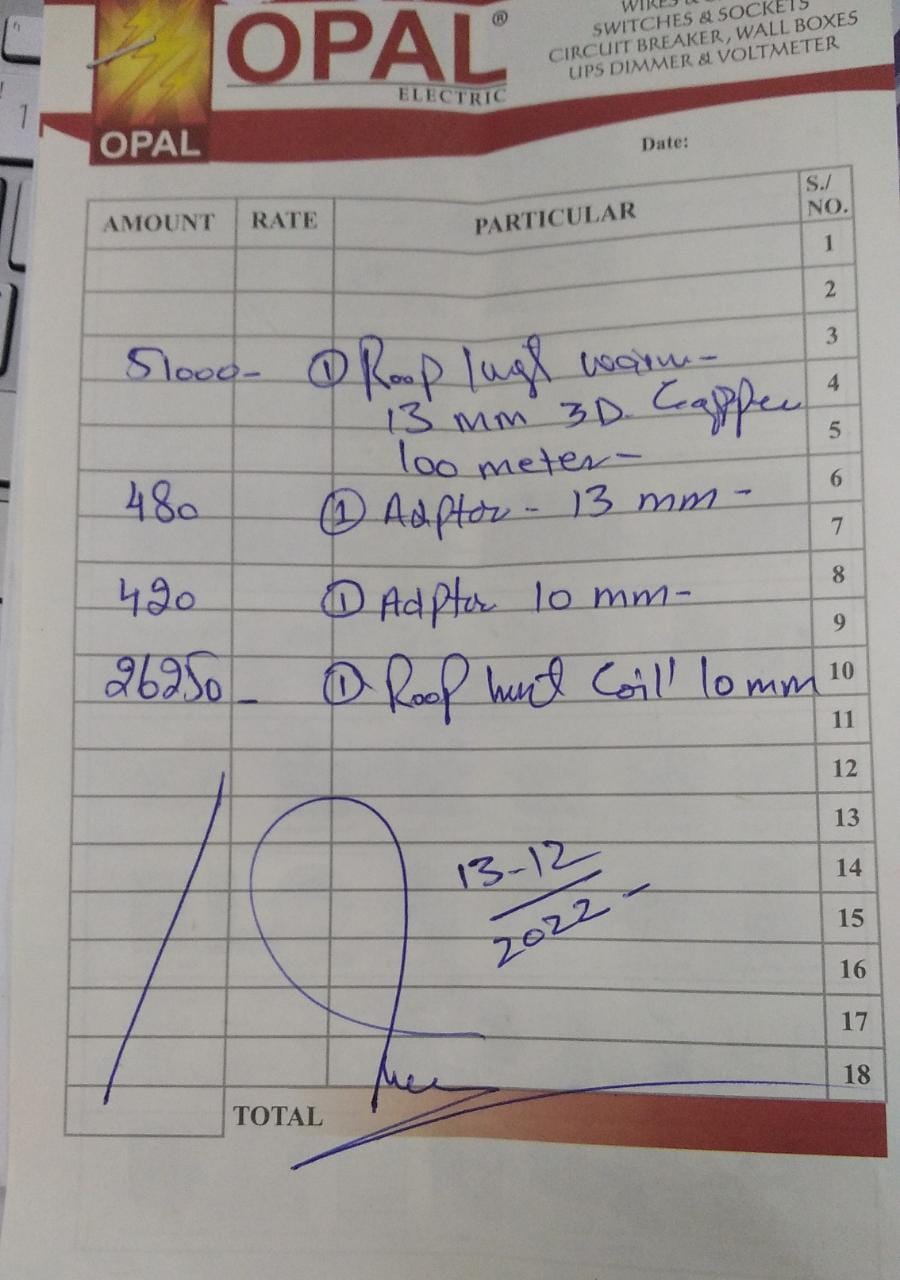 OPAL®
ELECTRIC
WIRES &
SWITCHES & SOCKETS
CIRCUIT BREAKER, WALL BOXES
UPS DIMMER & VOLTMETER
OPAL
Date:
AMOUNT RATE PARTICULAR S./ NO.
1
2
3
51000- ① Roop
4
13 mm 3D
5
100 meter-
6
480 ① Adptor - 13 mm -
7
8
420 ① Adptor 10 mm-
9
26250 - ① Roop Coill 10 mm 10
11
12
13
13-12 14
2022 - 15
16
17
18
TOTAL